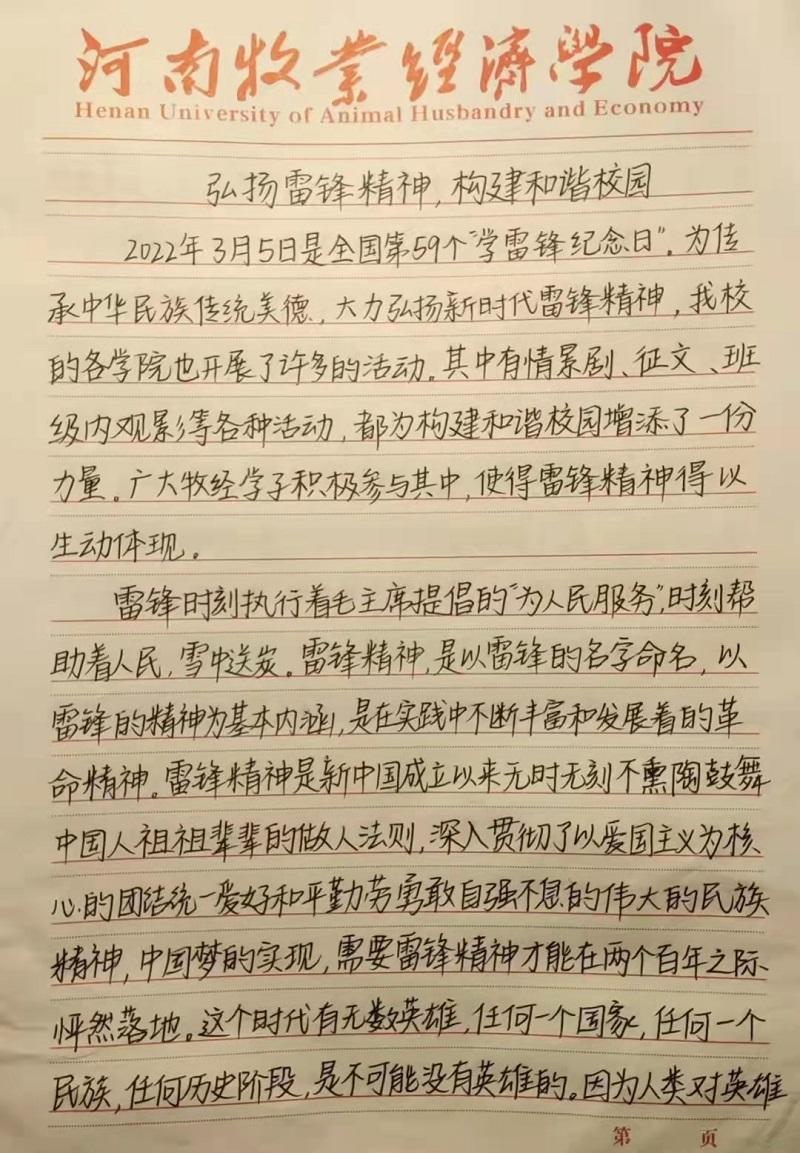 河南牧业经济学院
Henan University of Animal Husbandry and Economy
弘扬雷锋精神，构建和谐校园
2022年3月5日是全国第59个“学雷锋纪念日”。为传
承中华民族传统美德，大力弘扬新时代雷锋精神，我校
的各学院也开展了许多的活动。其中有情景剧、征文、班
级内观影等各种活动，都为构建和谐校园增添了一份
力量。广大牧经学子积极参与其中，使得雷锋精神得以
生动体现。
雷锋时刻执行着毛主席提倡的“为人民服务”，时刻帮
助着人民，雪中送炭。雷锋精神，是以雷锋的名字命名，以
雷锋的精神为基本内涵，是在实践中不断丰富和发展着的革
命精神。雷锋精神是新中国成立以来无时无刻不熏陶鼓舞
中国人祖祖辈辈的做人法则，深入贯彻了以爱国主义为核
心的团结统一爱好和平勤劳勇敢自强不息的伟大的民族
精神，中国梦的实现，需要雷锋精神才能在两个百年之际
怦然落地。这个时代有无数英雄，任何一个国家，任何一个
民族，任何历史阶段，是不可能没有英雄的。因为人类对英雄
第 页